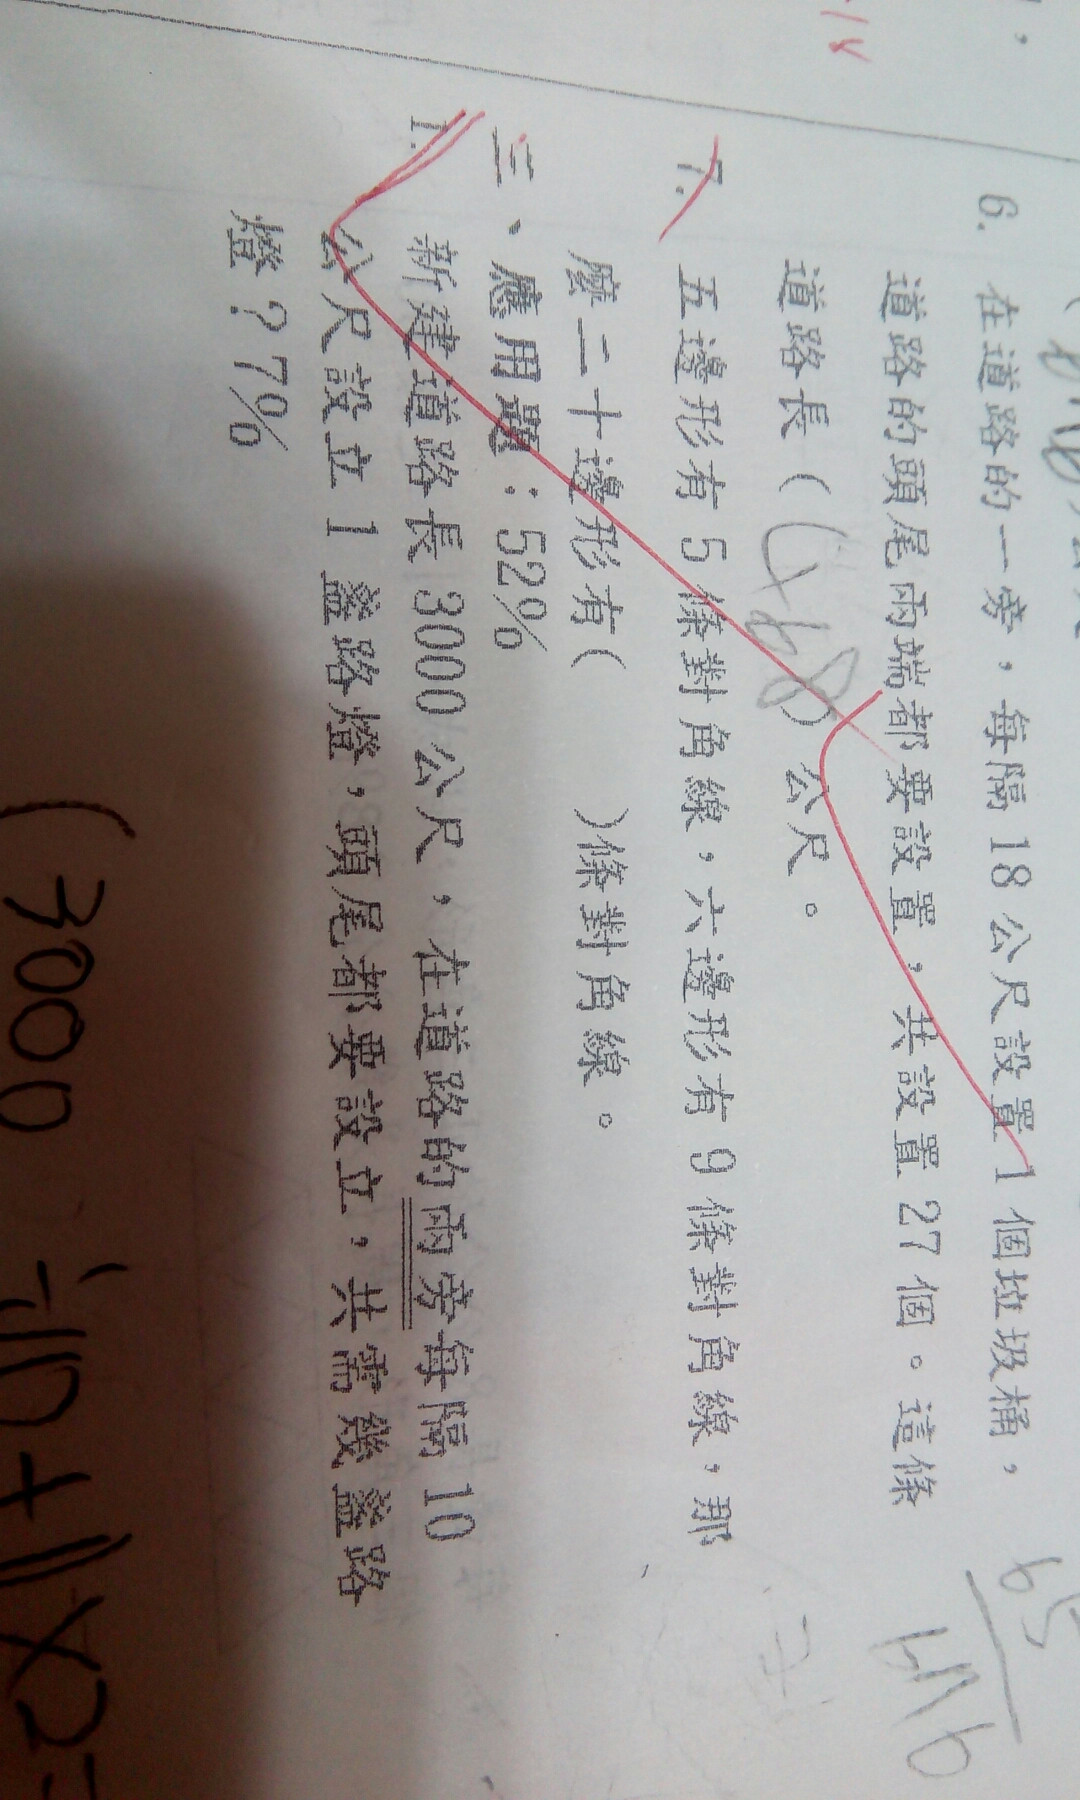 6. 在道路的一旁，每隔 18 公尺設置 1 個垃圾桶，
道路的頭尾兩端都要設置，共設置 27 個。這條
道路長（468）公尺。
7. 五邊形有 5 條對角線，六邊形有 9 條對角線，那
麼二十邊形有(　　)條對角線。
三、應用題：52%
1. 新建道路長 3000 公尺，在道路的兩旁每隔 10
公尺設立 1 盞路燈，頭尾都要設立，共需幾盞路
燈？7%
(3000÷10+1)×2=